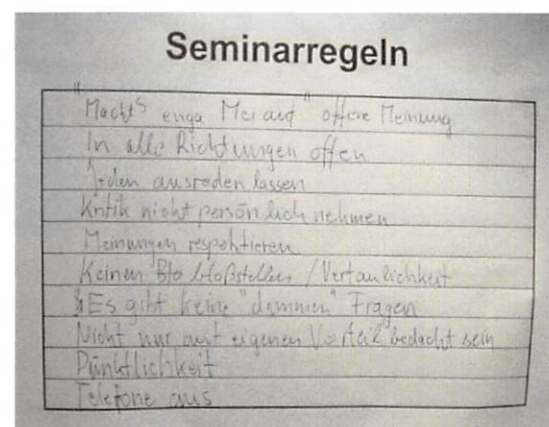 Seminarregeln
"Macht's enga Mei auf" offene Meinung
In alle Richtungen offen
Jeden ausreden lassen
Kritik nicht persönlich nehmen
Meinungen respektieren
Keinen bloßstellen / Vertraulichkeit
Es gibt keine "dummen" Fragen
Nicht nur auf eigenen Vorteil bedacht sein
Pünktlichkeit
Telefone aus